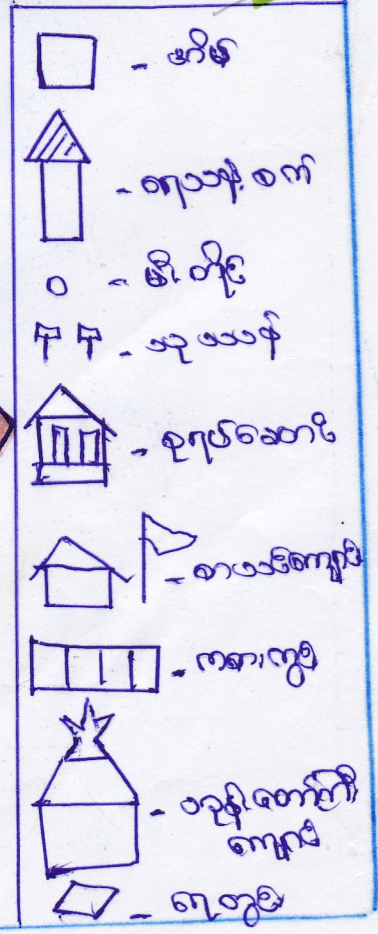 - အိမ်
- ရေသန့်စက်
- မီးတိုင်
- သုဿန်
- စုရပ်ခေတင်
- စာသင်ကျောင်း
- ကစားကွင်း
- ဘုန်းတော်ကြီး
ကျောင်း
- ရေတွင်း